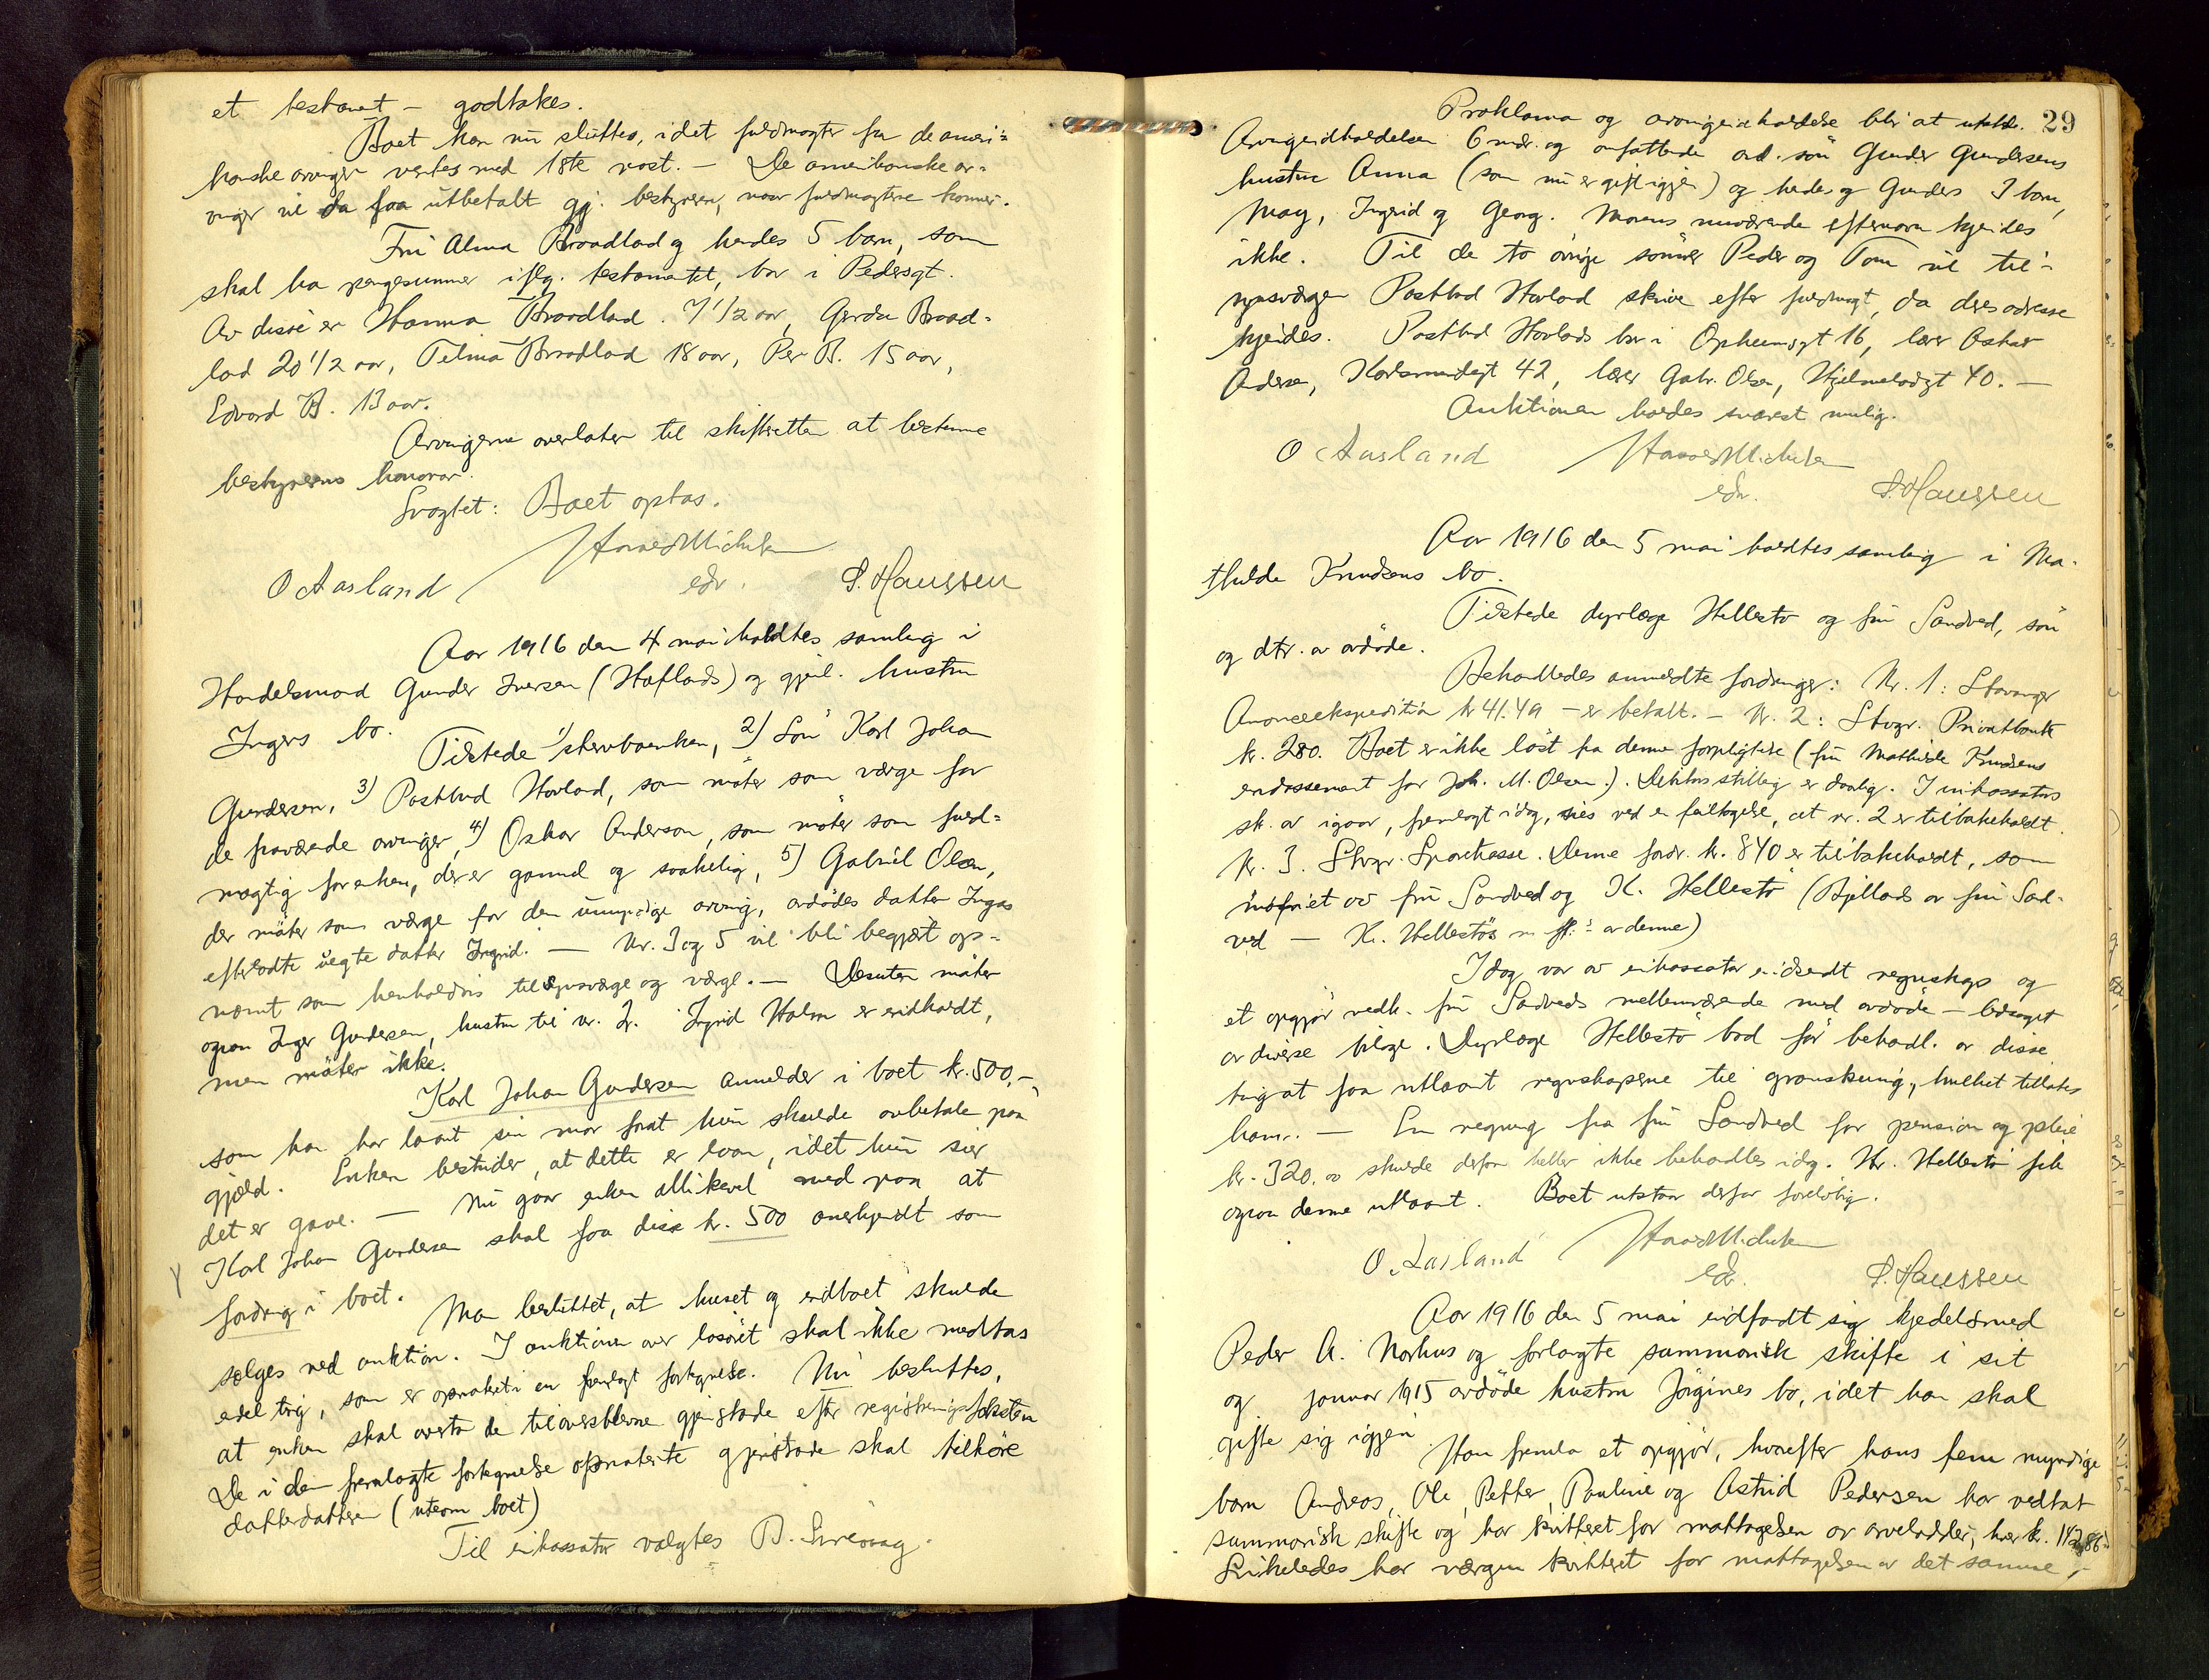 et testamt – godtakes.
Boet kan nu sluttes, idet fuldmagter fra de ameri=
kanske arvinger ventes med 1ste post. – De amerikanske ar-
vinger vil da faa utbetalt gj. bestyreren, naar fuldmagtene kommer.
Fru Alma Braadlad og hendes 5 barn, som
skal ha pengesummer iflg. testamentet, bor i Pedersgt.
Av disse er Hanna Braadlad. 7 1/2 aar, Gerda Braad-
lad 20 1/2 aar, Telma Braadlad 18 aar, Per B. 15 aar,
Edvard B. 13 aar.
Arvingerne overlater til skifteretten at bestemme
bestyrerens honorar.
Sragtet: Boet optas.
O Aasland edr. S. Haussen
Aar 1916 den 4 mai holdtes samling i
Handelsmand Gunder Iversen (Haflads) og gjenl. hustru
Ingers bo.
Tilstede 1) stervboenken, 2) Søn Karl Johan
Gundersen, 3) Postbud Havlad, som møter som værge for
de fraværende arvinger, 4) Oskar Anderson, som møter som fuld=
mægtig for enken, der er gammel og svakelig, 5) Gabriel Olsen,
der møter som værge for den umyndige arving, avdødes datter Ingas
efterladte uegte datter Ingrid. – Nr. 3 og 5 vil bli begjært op-
nævnt som henholdsvis tilsynsværge og værge. – Desuten møter
ogsaa Inger Gundersen, hustru til nr. 2. Ingrid Halm er indkaldt,
men møter ikke.
Karl Johan Gundersen anmelder i boet kr. 500,–,
som han har laant sin mor forat hun skulde avbetale paa
gjæld. Enken bestrider, at dette er laan, idet hun sier
det er gave. – Nu gaar enken allikevel med paa at
Karl Johan Gundersen skal faa disse kr. 500 anerkjendt som
fordring i boet.
Man besluttet, at huset og indboet skulde
sælges ved auktion. I auktionen over løsøret skal ikke medtas
endel ting, som er opnoteret i en fremlagt fortegnelse. Nu besluttes,
at enken skal overta de tiloversblevne gjenstande efter registreringstaksten
De i den fremlagte fortegnelse opnoterte gjenstande skal tilhøre
datterdatteren (utenom boet)
Til inkassator valgtes B.
29
Proklama og arvingeindkaldelse blir at utstede.
Arvingeindkaldelsen 6 mdr. og omfattende avd. søn Gunder Gundersens
hustru Anna (som nu er gift igjen) og hendes og Gunders 3 barn,
May, Ingrid og Georg. Morens nuværende efternavn kjendes
ikke. Til de to øvrige sønner Peder og Tom vil til-
synsværgen Postbud Havlad skrive efter fuldmagt, da deres adresse
kjendes. Postbud Havlads bor i Opheimsgt 16, lærer Oskar
Andersen, 42, lærer Gabr. Olsen, Hjelmelandsgt 40. –
Auktionen holdes snarest mulig.
O Aasland edr. S. Haussen
Aar 1916 den 5 mai holdtes samling i Ma-
thilde Knudsens bo.
Tilstede dyrlæge Hellestø og fru Sandved, søn
og dtr. av avdøde.
Behandledes anmeldte fordringer: Nr. 1: Stavanger
Annonceekspedition kr 41.49 – er betalt. – Nr. 2: Stvgr. Privatbank
kr. 280. Boet er ikke løst fra denne forpligtelse (fru Mathilde Knudsens
endossement for Joh. M. Olsen). Debitors stilling er daarlig. I inkassators
sk. av igaar, fremlagt idag, sies ved en feiltagelse, at nr. 2 er tilbakekaldt.
Nr. 3. Stvgr. Sparekasse. Denne fordr. kr. 840 er tilbakekaldt, som
indfriet av fru Sandved og K. Hellestø av fru Sand-
ved – K. Hellestøs av denne)
Idag var av inkassator indsendt regnskap og
et opgjør vedk. fru Sandveds mellemværende med avdøde – ledsaget
av diverse bilage. Dyrlæge Hellestø bad før behandl. av disse
ting at faa utlaant regnskaperne til granskning, hvilket tillates
ham. – En regning fra fru Sandved for pension og pleie
kr. 320. skulde derfor heller ikke behandles idag. Hr. Hellestø fik
ogsaa denne utlaant. Boet utstaar derfor foreløbig.
O. Aasland edr. S. Haussen
Aar 1916 den 5 mai indfandt sig kjedelsmed
Peder A. Norhus og forlangte summarisk skifte i sit
og januar 1915 avdøde hustru Jørgines bo, idet han skal
gifte sig igjen
Han fremla et opgjør, hvorefter hans fem myndige
barn Andreas, Ole, Petter, Pauline og Astrid Pedersen har vedtat
summarisk skifte og har kvitteret for mottagelsen av arvelodder, hver kr. 142,86.
Likeledes har værgen kvitteret for mottagelsen av det samme,